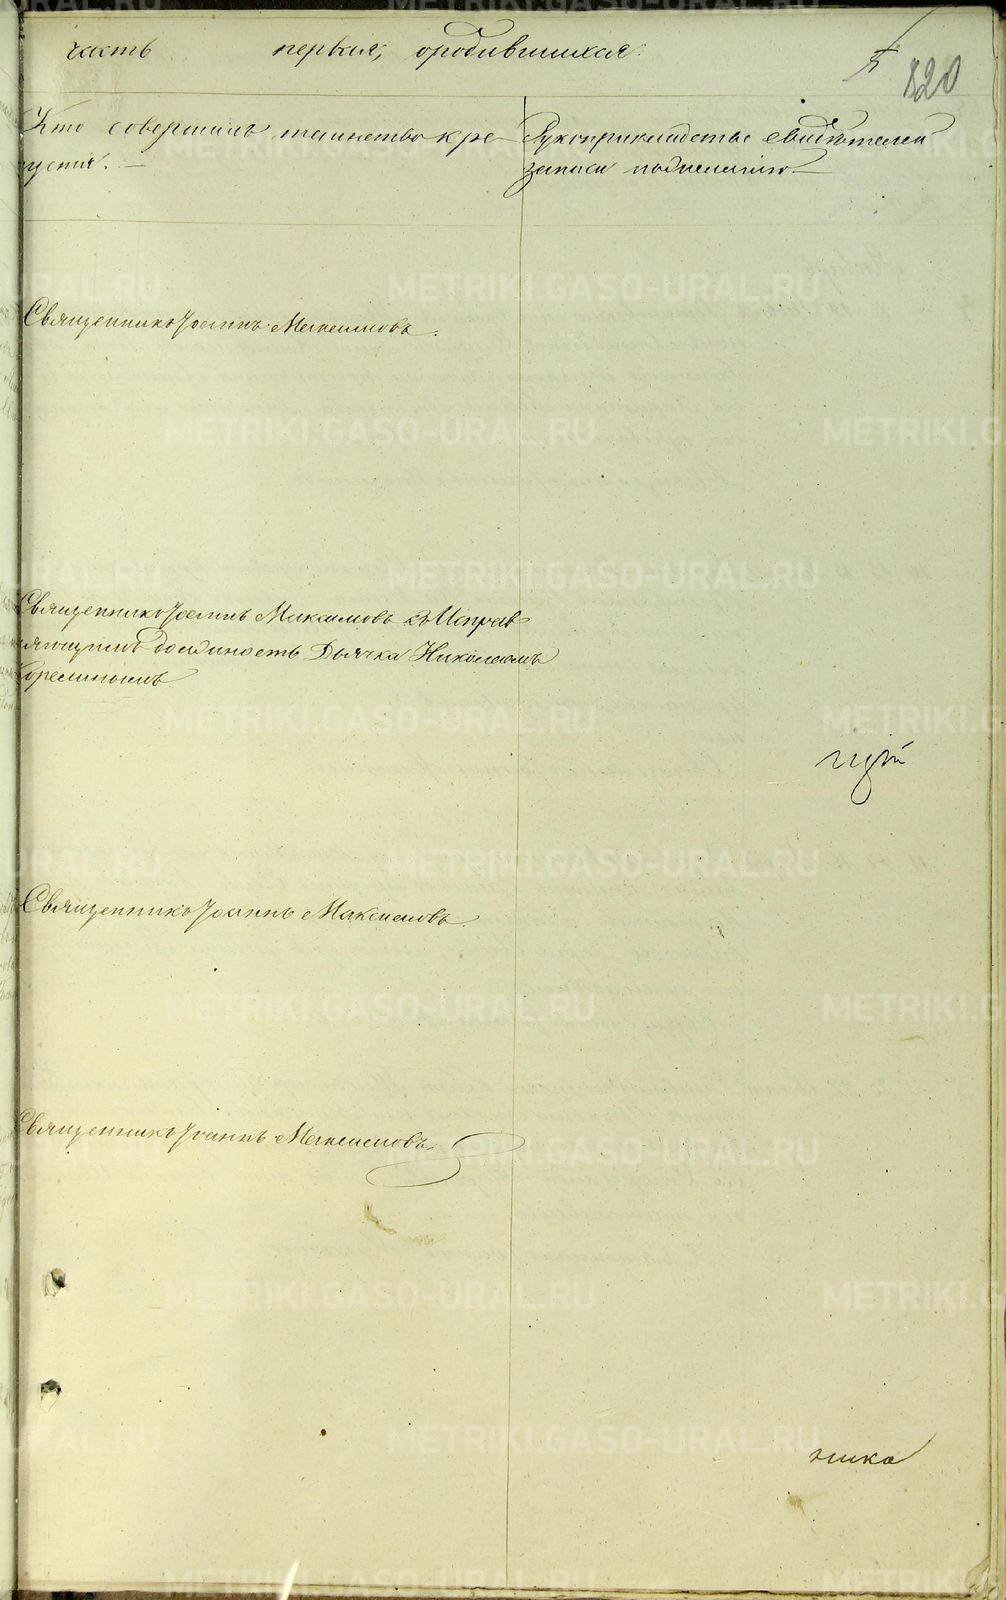 часть первая, ородившихся.
820
Кто совершилъ таинство кре
щенія.
Рукоприкладство свидѣтелей
записи по желанію
Священникъ Іоаннъ Максимовъ.
Священникъ Іоаннъ Максимовъ съ Исправ
ляющимъ должность Дьячка Николаемъ
Священникъ Іоаннъ Максимовъ.
Священникъ Іоаннъ Максимовъ
ника
METRIKI.GASO-URAL.RU